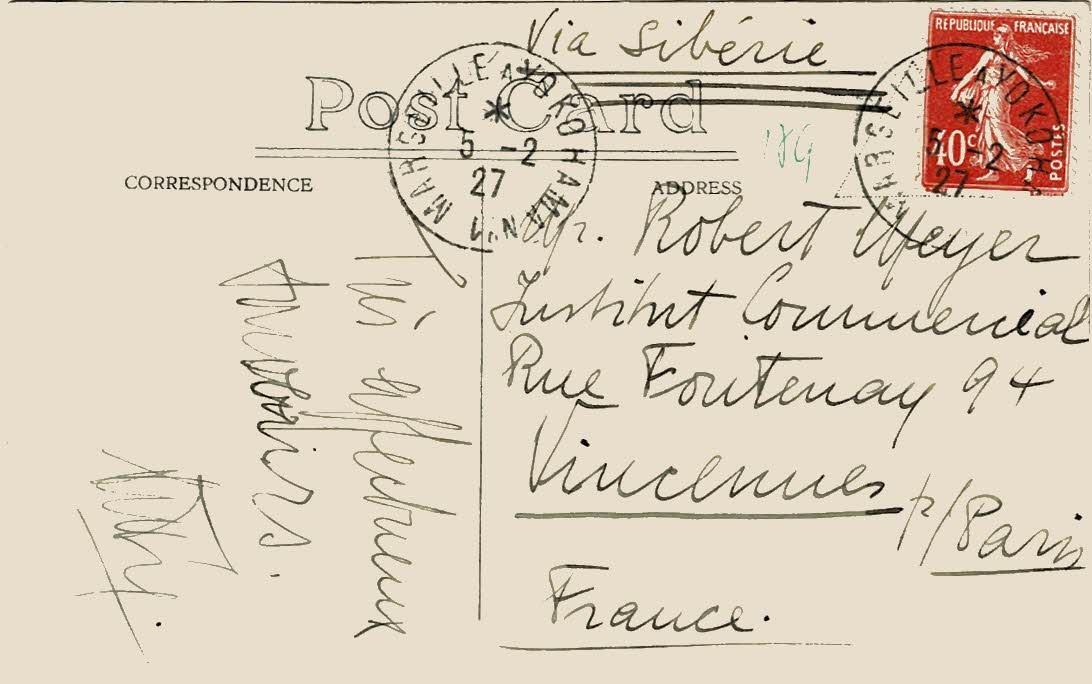 Via Sibérie
RÉPUBLIQUE FRANÇAISE
40c
POSTES
Post Card
MARSEILLE A YOKOHAMA
5 -2
27
N°1
MARSEILLE A YOKOH
5 -2
27
189
CORRESPONDENCE
ADDRESS
Mr. Robert Meyer
Institut Commercial
Rue Fontenay 94
Vincennes
p/Paris
France.
Très affectueux